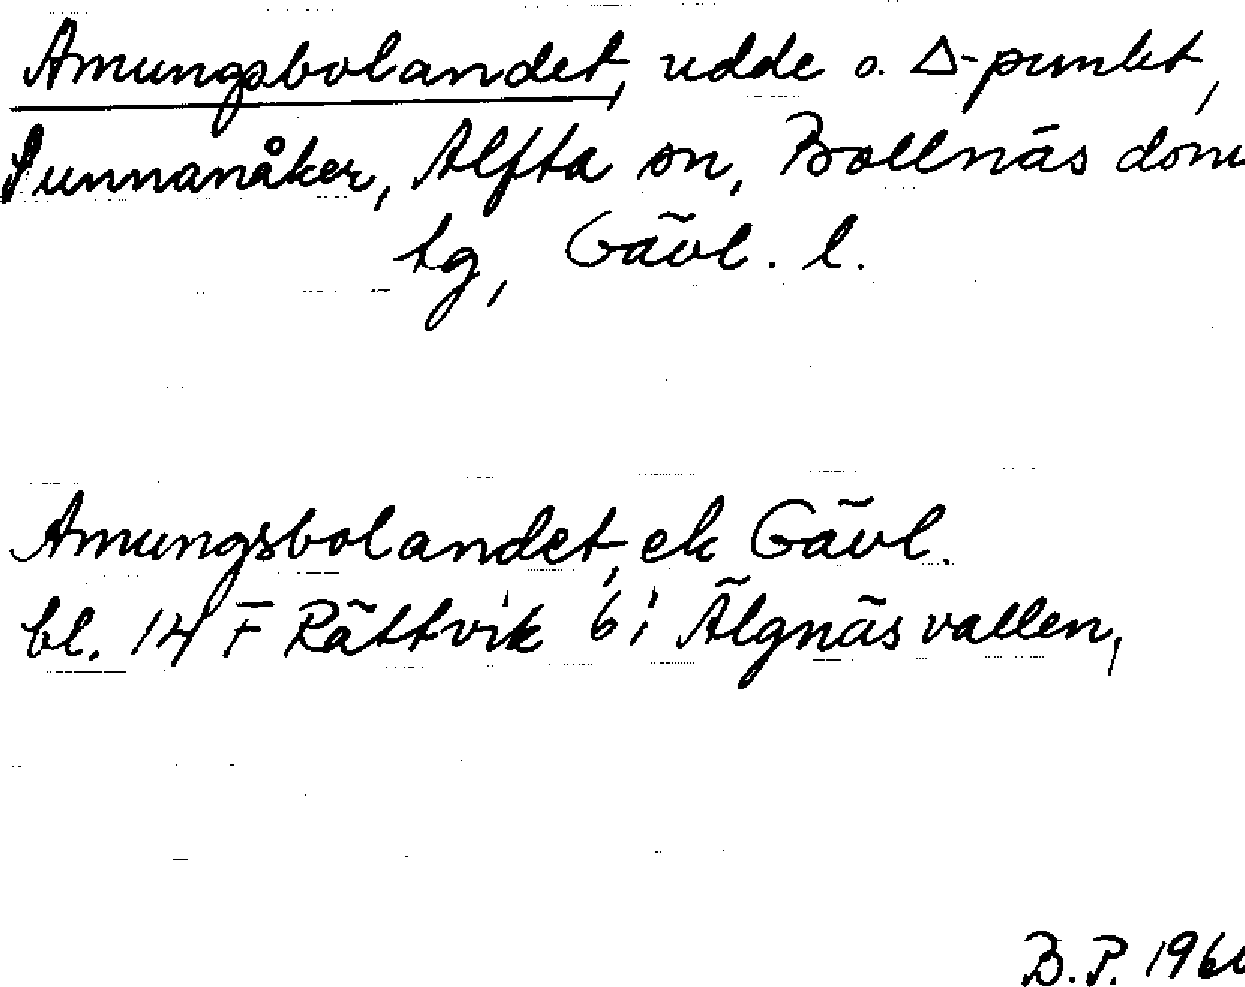 Amungsbolandet, udde o. Δ-punkt,
Sunnanåker, Alfta sn, Bollnäs doms
tg, Gävl. l.
Amungsbolandet, ek Gävl.
bl. 14 F Rättvik 6 i Älgnäsvallen,
B.P. 196